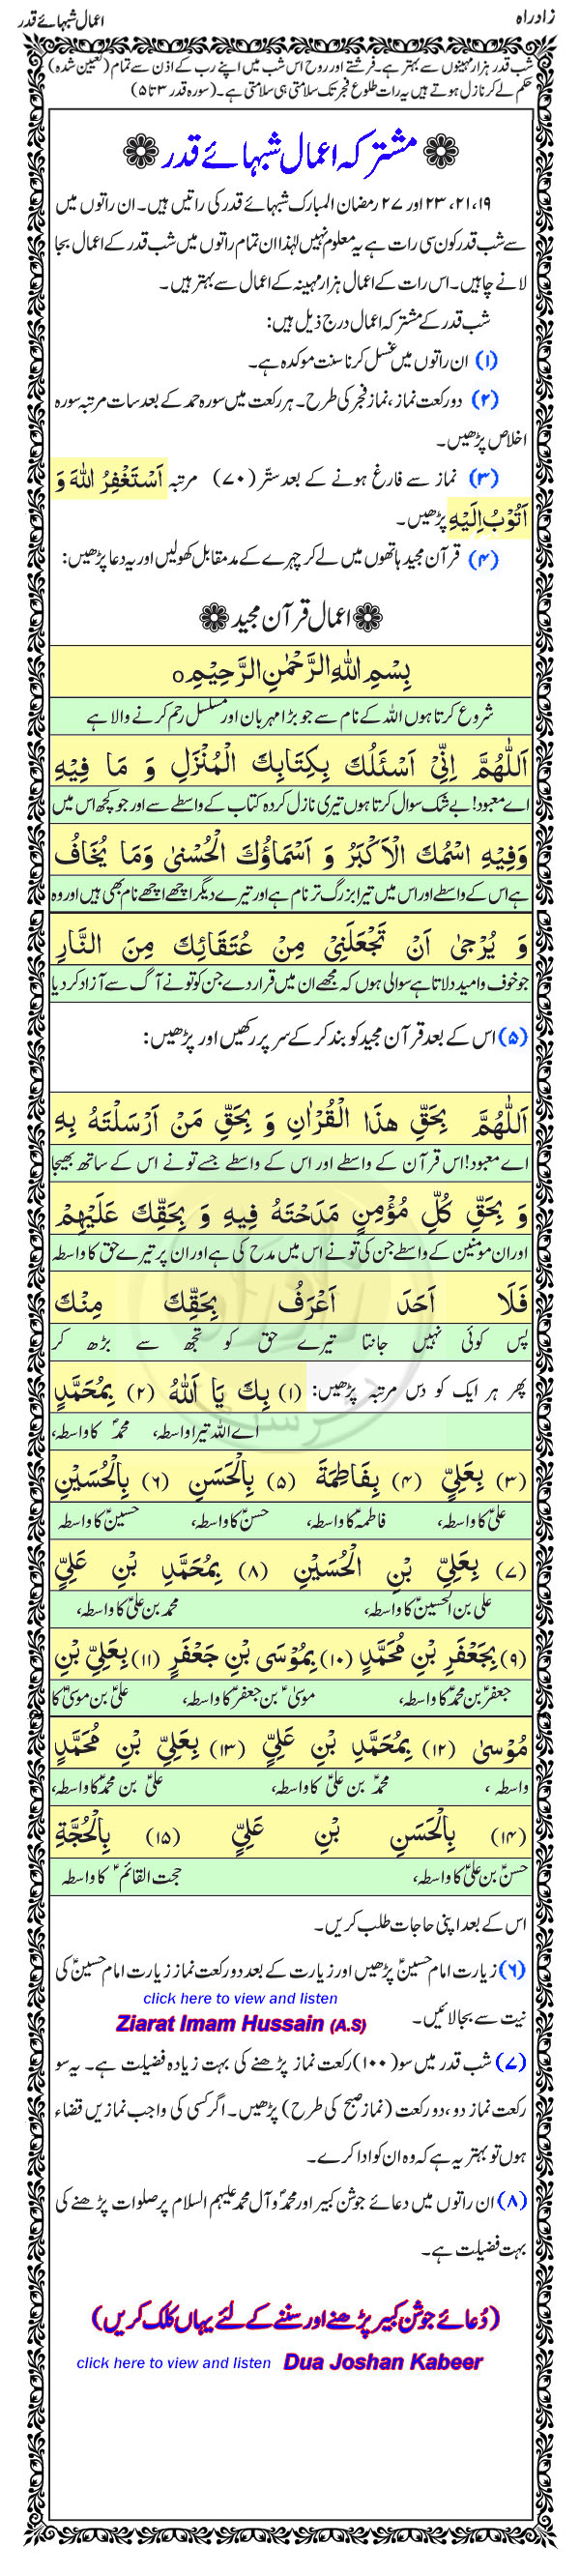 زادراہ
اعمال شبہائے قدر
شب قدر ہزار مہینوں سے بہتر ہے۔ فرشتے اور روح اس شب میں اپنے رب کے اذن سے تمام (تعیین شدہ)
حکم لے کر نازل ہوتے ہیں یہ رات طلوع فجر تک سلامتی ہی سلامتی ہے۔ (سورہ قدر ۳ تا ۵)
مشترکہ اعمال شبہائے قدر
۱۹، ۲۱، ۲۳ اور ۲۷ رمضان المبارک شبہائے قدر کی راتیں ہیں۔ ان راتوں میں
سے شب قدر کون سی رات ہے یہ معلوم نہیں لہٰذا ان تمام راتوں میں شب قدر کے اعمال بجا
لانے چاہیں۔ اس رات کے اعمال ہزار مہینہ کے اعمال سے بہتر ہیں۔
شب قدر کے مشترکہ اعمال درج ذیل ہیں:
(۱) ان راتوں میں غسل کرنا سنت موکدہ ہے۔
(۲) دو رکعت نماز، نماز فجر کی طرح۔ ہر رکعت میں سورہ حمد کے بعد سات مرتبہ سورہ
اخلاص پڑھیں۔
(۳) نماز سے فارغ ہونے کے بعد ستّر (۷۰) مرتبہ اَسْتَغْفِرُ اللهَ وَ
اَتُوْبُ اِلَيْهِ پڑھیں۔
(۴) قرآن مجید ہاتھوں میں لے کر چہرے کے مد مقابل کھولیں اور یہ دعا پڑھیں:
اعمال قرآن مجید
بِسْمِ اللهِ الرَّحْمٰنِ الرَّحِيْمِ ○
شروع کرتا ہوں اللہ کے نام سے جو بڑا مہربان اور مسلسل رحم کرنے والا ہے
اَللّٰهُمَّ اِنِّيْ اَسْئَلُكَ بِكِتَابِكَ الْمُنْزَلِ وَ مَا فِيْهِ
اے معبود! بے شک سوال کرتا ہوں تیری نازل کردہ کتاب کے واسطے سے اور جو کچھ اس میں
وَفِيْهِ اسْمُكَ الْاَكْبَرُ وَ اَسْمَاؤُكَ الْحُسْنىٰ وَمَا يُخَافُ
ہے اس کے واسطے اور اس میں تیرا بزرگ تر نام ہے اور تیرے دیگر اچھے اچھے نام بھی ہیں اور وہ
وَ يُرْجىٰ اَنْ تَجْعَلَنِيْ مِنْ عُتَقَائِكَ مِنَ النَّارِ
جو خوف و امید دلاتا ہے سوالی ہوں کہ مجھے ان میں قرار دے جن کو تو نے آگ سے آزاد کر دیا
(۵) اس کے بعد قرآن مجید کو بند کر کے سر پر رکھیں اور پڑھیں:
اَللّٰهُمَّ بِحَقِّ هٰذَا الْقُرْاٰنِ وَ بِحَقِّ مَنْ اَرْسَلْتَهٗ بِهٖ
اے معبود! اس قرآن کے واسطے اور اس کے واسطے جسے تو نے اس کے ساتھ بھیجا
وَ بِحَقِّ كُلِّ مُؤْمِنٍ مَدَحْتَهٗ فِيْهِ وَ بِحَقِّكَ عَلَيْهِمْ
اور ان مومنین کے واسطے جن کی تو نے اس میں مدح کی ہے اور ان پر تیرے حق کا واسطہ
فَلَا اَحَدَ اَعْرَفُ بِحَقِّكَ مِنْكَ
پس کوئی نہیں جانتا تیرے حق کو تجھ سے بڑھ کر
پھر ہر ایک کو دس مرتبہ پڑھیں: (۱) بِكَ يَا اَللهُ (۲) بِمُحَمَّدٍ
اے اللہ تیرا واسطہ، محمدؐ کا واسطہ،
(۳) بِعَلِيٍّ (۴) بِفَاطِمَةَ (۵) بِالْحَسَنِ (۶) بِالْحُسَيْنِ
علیؑ کا واسطہ، فاطمہؑ کا واسطہ، حسنؑ کا واسطہ، حسینؑ کا واسطہ
(۷) بِعَلِيِّ بْنِ الْحُسَيْنِ (۸) بِمُحَمَّدِ بْنِ عَلِيٍّ
علی بن الحسینؑ کا واسطہ، محمد بن علیؑ کا واسطہ،
(۹) بِجَعْفَرِ بْنِ مُحَمَّدٍ (۱۰) بِمُوْسَى بْنِ جَعْفَرٍ (۱۱) بِعَلِيِّ بْنِ
جعفر بن محمدؑ کا واسطہ، موسیٰؑ بن جعفرؑ کا واسطہ، علیؑ بن موسیٰؑ کا
مُوْسىٰ (۱۲) بِمُحَمَّدِ بْنِ عَلِيٍّ (۱۳) بِعَلِيِّ بْنِ مُحَمَّدٍ
واسطہ، محمدؑ بن علیؑ کا واسطہ، علیؑ بن محمدؑ کا واسطہ،
(۱۴) بِالْحَسَنِ بْنِ عَلِيٍّ (۱۵) بِالْحُجَّةِ
حسنؑ بن علیؑ کا واسطہ، حجت القائمؑ کا واسطہ
اس کے بعد اپنی حاجات طلب کریں۔
(۶) زیارت امام حسینؑ پڑھیں اور زیارت کے بعد دو رکعت نماز زیارت امام حسینؑ کی
نیت سے بجا لائیں۔
click here to view and listen
Ziarat Imam Hussain (A.S)
(۷) شب قدر میں سو (۱۰۰) رکعت نماز پڑھنے کی بہت زیادہ فضیلت ہے۔ یہ سو
رکعت نماز دو، دو رکعت (نماز صبح کی طرح) پڑھیں۔ اگر کسی کی واجب نمازیں قضاء
ہوں تو بہتر یہ ہے کہ وہ ان کو ادا کرے۔
(۸) ان راتوں میں دعائے جوشن کبیر اور محمدؐ و آل محمد علیہم السلام پر صلوات پڑھنے کی
بہت فضیلت ہے۔
(دُعائے جوشن کبیر پڑھنے اور سننے کے لئے یہاں کلک کریں)
click here to view and listen Dua Joshan Kabeer